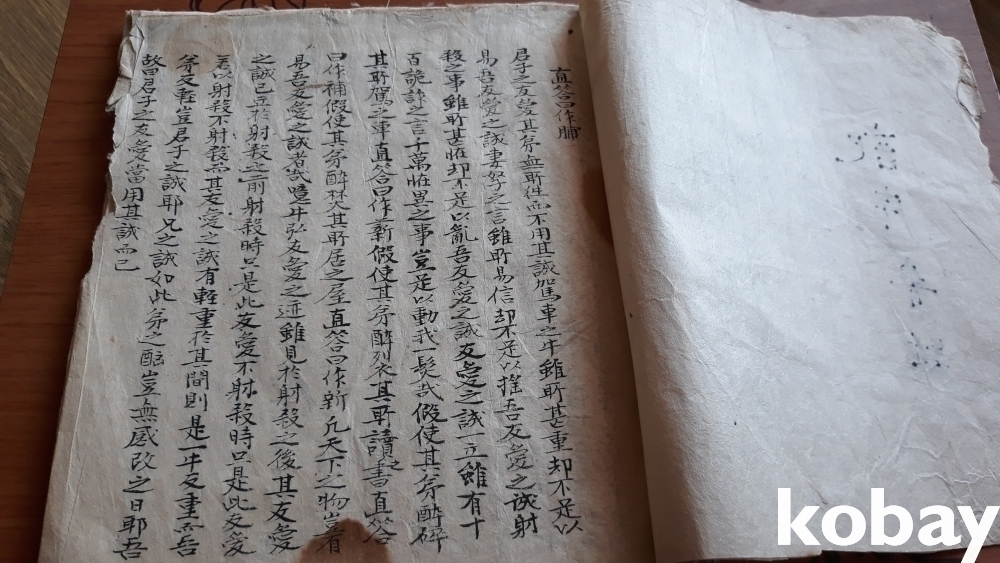 直答曰作脯
君子之友愛其弟無所往而不用其誠駕車之牛雖所甚重却不足以
易吾友愛之誠妻孥之言雖所易信却不足以摧吾友愛之誠射
殺之事雖所甚恠却不足以亂吾友愛之誠友愛之誠一立雖有十
百詭詐之言千萬恠異之事豈足以動我一髮哉假使其弟醉碎
其所駕之車直答曰作薪假使其弟醉裂衣其所讀之書直答
曰作補假使其弟醉焚其所居之屋直答曰作新凡天下之物豈有
易吾友愛之誠者哉噫牛弘友愛之迹雖見於射殺之後其友愛
之誠已立於射殺之前射殺時只是此友愛不射殺時只是此友愛
若以射殺不射殺而其友愛之誠有輕重於其間則是一牛反重而吾
弟反輕豈君子之誠耶兄之誠如此弟之酗豈無感改之日耶吾
故曰君子之友愛當用其誠而已
kobay